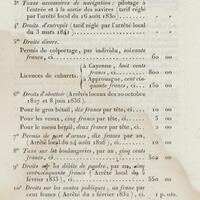 3° Taxes accessoires de navigation : pilotage à
l'entrée et à la sortie des navires (tarif réglé
par l'arrêté local du 16 août 1830 )
4° Droits d'entrepôt (tarif réglé par l'arrêté local
du 3 mars 1841 )
5° Droits divers.
Permis de colportage, par individu, soixante
francs, ci 60 00
Licences de cabarets. à Cayenne, huit cents
francs, ci 800 00
à Approuague, cent cin-
quante francs, ci 150 00
6° Droits d'abattoir (Arrêtés locaux des 20 octobre
1827 et 8 juin 1836 ).
Pour le gros bétail, dix francs par tête, ci 10 00
Pour les veaux, cinq francs par tête, ci 5 00
Pour le menu bétail, deux francs par tête, ci 2 00
7° Permis de port d'armes, dix francs par an,
(Arrêté local du 14 août 1826 ), ci 10 00
8° Taxe sur les boulangeries, par an, cinq cents
francs, ci 500 00
9° Droits sur les débits de poudre, par an, cinq
cent cinquante francs ( Arrêté local du
février 1833 ), ci 550 00
10° Droits sur les ventes publiques, un franc par
cent francs ( Arrêté du 2 février 1830 ), ci 1 p. 0/0.